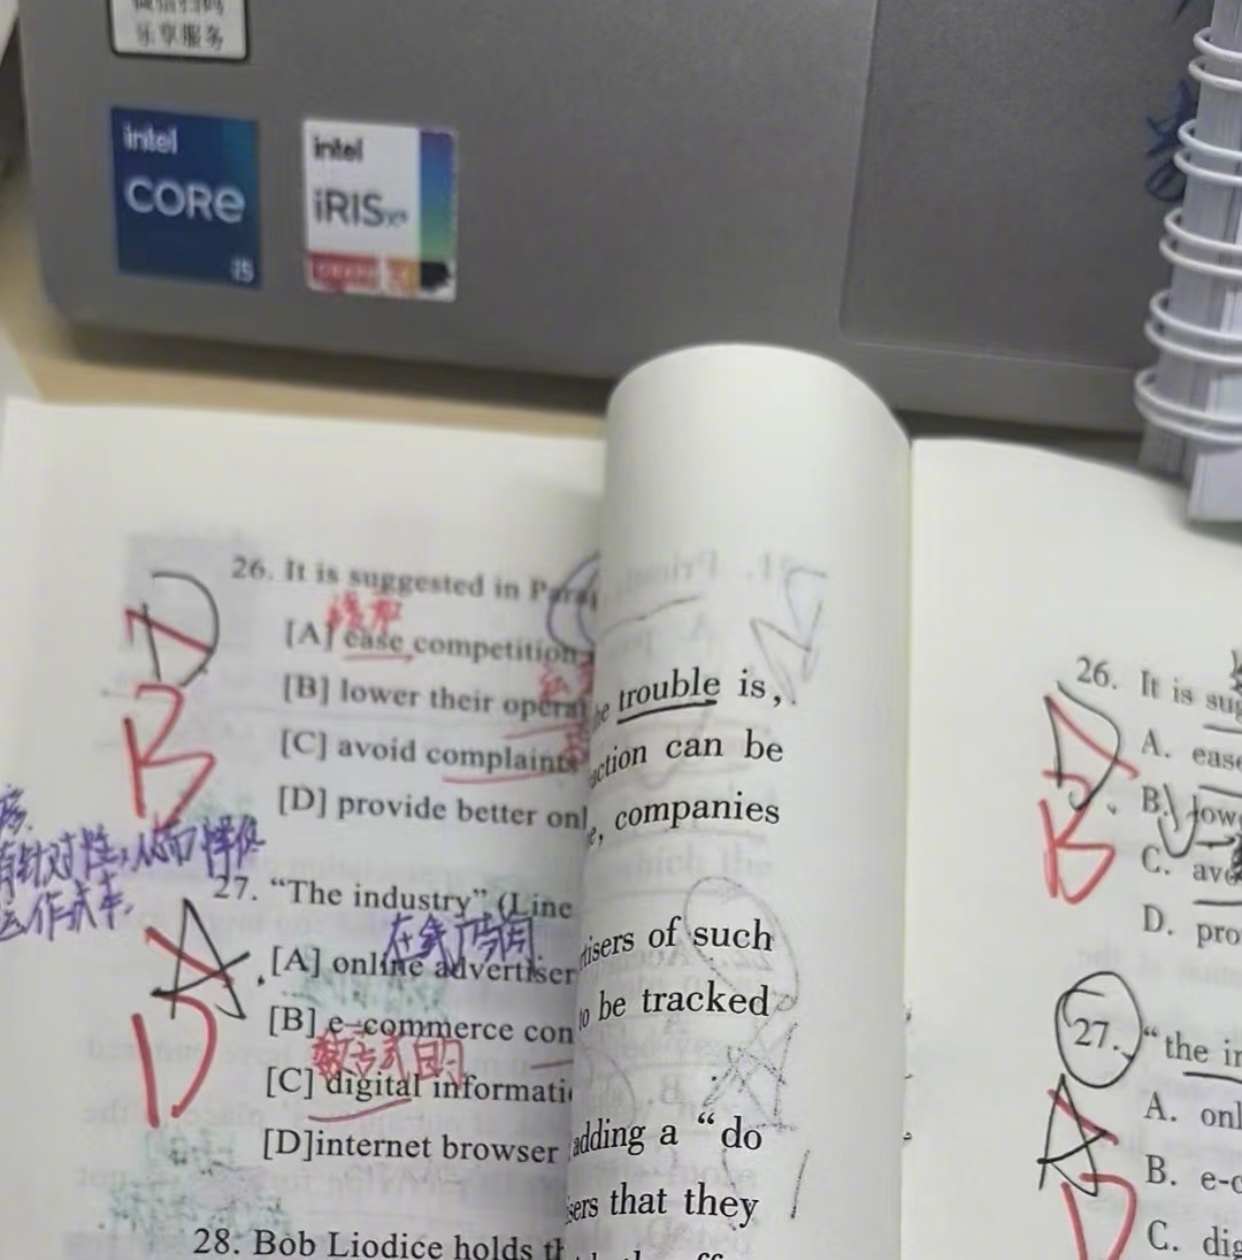 微信扫码
乐享服务
intel
CORE
i5
intel
iRIS Xe
GRAPHICS
D
B
26. It is suggested in Para
缓和
[A] ease competition
[B] lower their opera
[C] avoid complaints
[D] provide better onl
有针对性,从而降低
运作成本,
27. “The industry” (Line
在线广告商
A
D
[A] online advertiser
[B] e-commerce con
数字式的
[C] digital informati
[D]internet browser
28. Bob Liodice holds th
e trouble is,
action can be
e, companies
tisers of such
to be tracked
adding a “do
sers that they
26. It is sug
D
B
A. ease
B. low
C. avo
D. pro
27. “the in
A
D
A. onl
B. e-c
C. dig